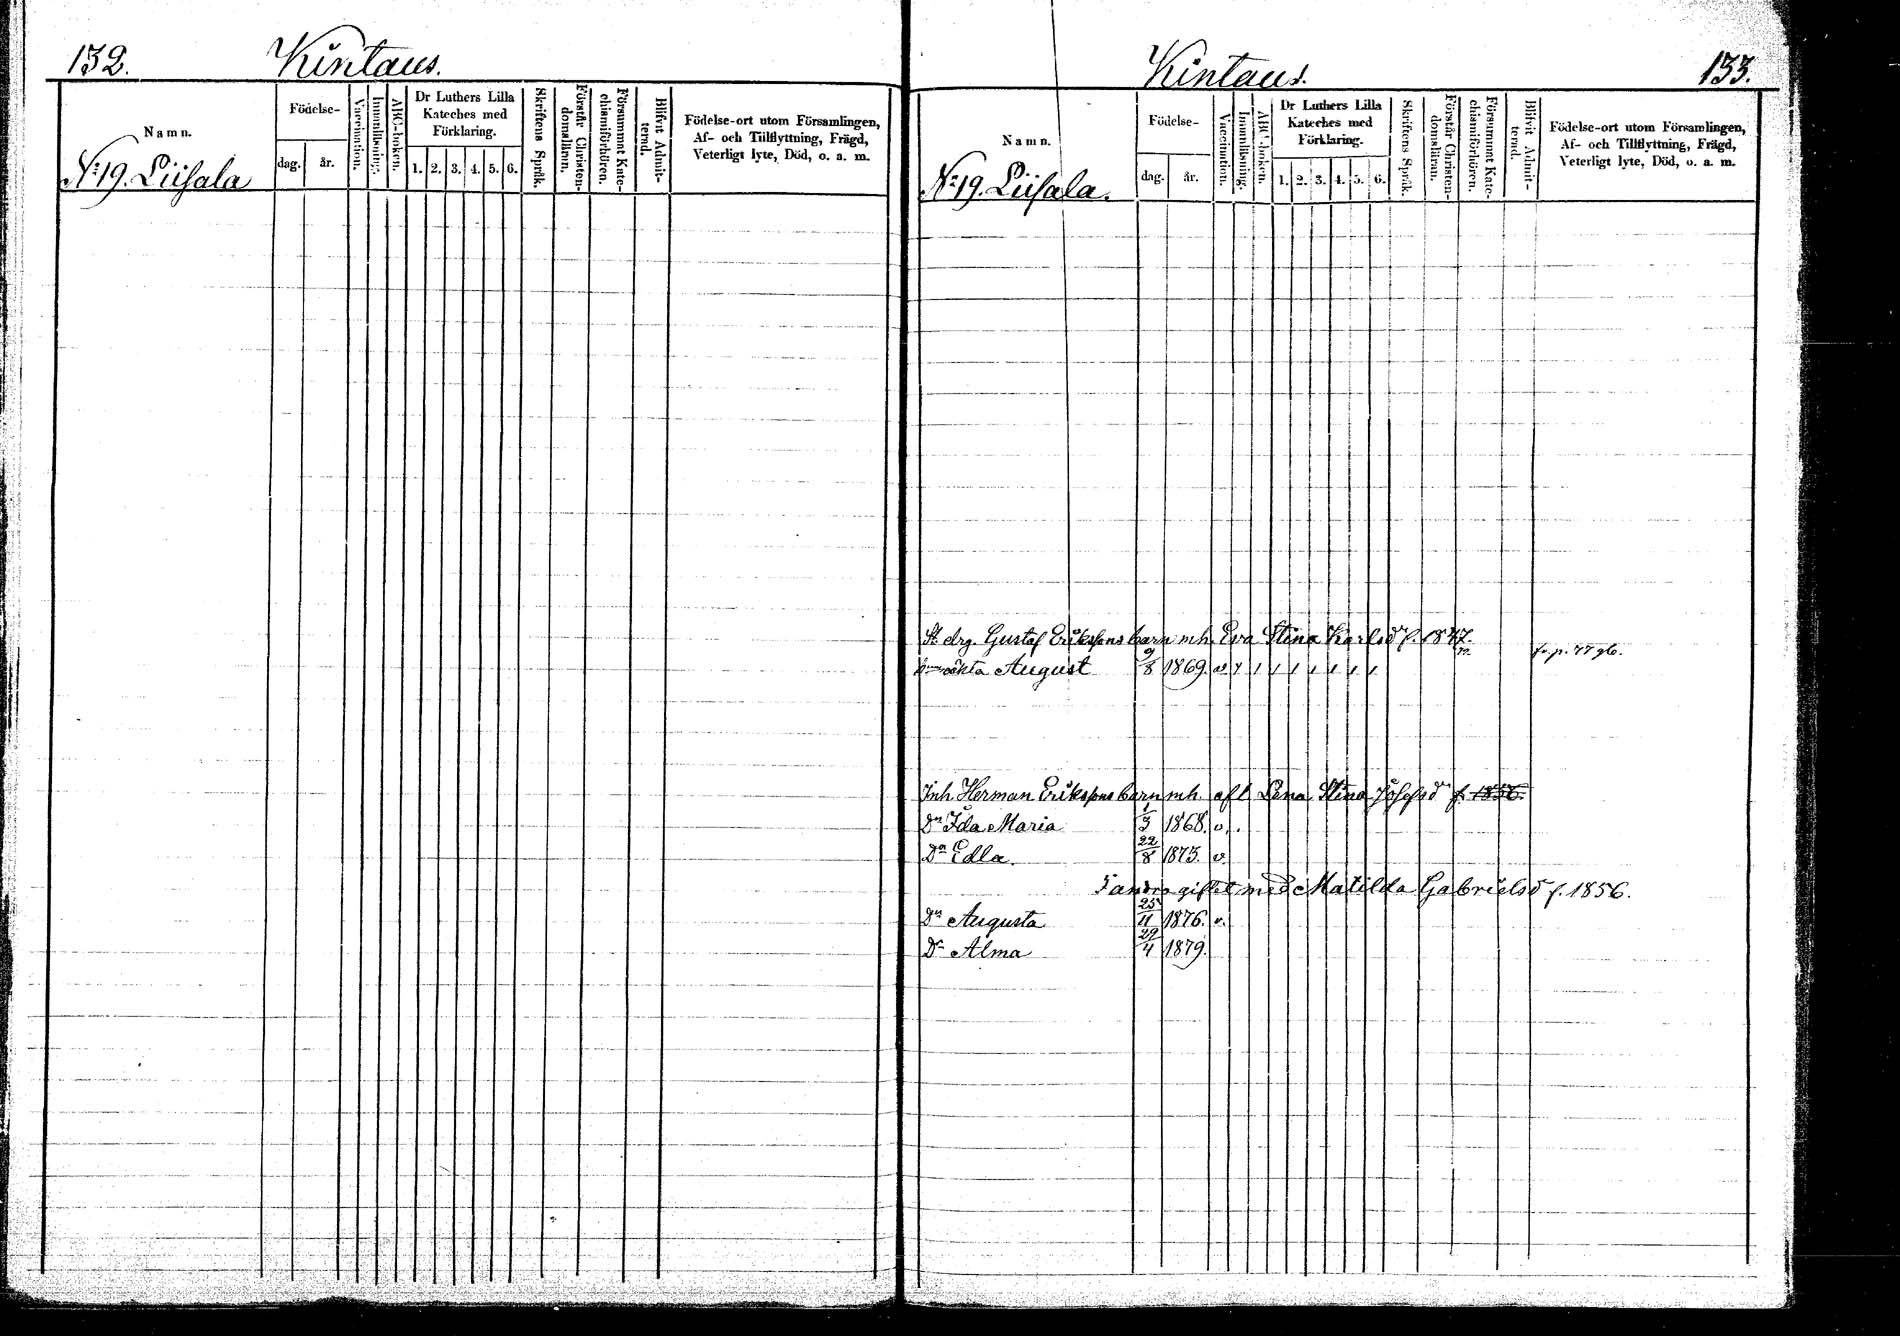 132. Kintaus.
Namn.
Födelse-
dag. år.
Vaccination.
Innanläsning.
ABC-boken.
Dr Luthers Lilla
Kateches med
Förklaring.
1. 2. 3. 4. 5. 6.
Skriftens Språk.
Förstår Christen-
domsläran.
Försummat Kate-
chismiförhören.
Blifvit Admit-
terad.
Födelse-ort utom Församlingen,
Af- och Tillflyttning, Frägd,
Veterligt lyte, Död, o. a. m.
No 19. Liisala
Kintaus. 133.
Namn.
Födelse-
dag. år.
Vaccination.
Innanläsning.
ABC-boken.
Dr Luthers Lilla
Kateches med
Förklaring.
1. 2. 3. 4. 5. 6.
Skriftens Språk.
Förstår Christen-
domsläran.
Försummat Kate-
chismiförhören.
Blifvit Admit-
terad.
Födelse-ort utom Församlingen,
Af- och Tillflyttning, Frägd,
Veterligt lyte, Död, o. a. m.
No 19. Liisala.
drg. Gustaf Erikssons barn m h. Eva Stina Karlsd f. 1847.
äkta August 9/8 1869. fr. p. 77 gb.
Inh. Herman Erikssons barn m h. afl Lena Stina Josefsd f. 1856.
Dr Ida Maria 1/3 1868. v.
Dr Edla. 22/8 1873. v.
I andra giftet med Matilda Gabrielsd f. 1856.
Dr Augusta 25/11 1876. v.
Dr Alma 29/4 1879.